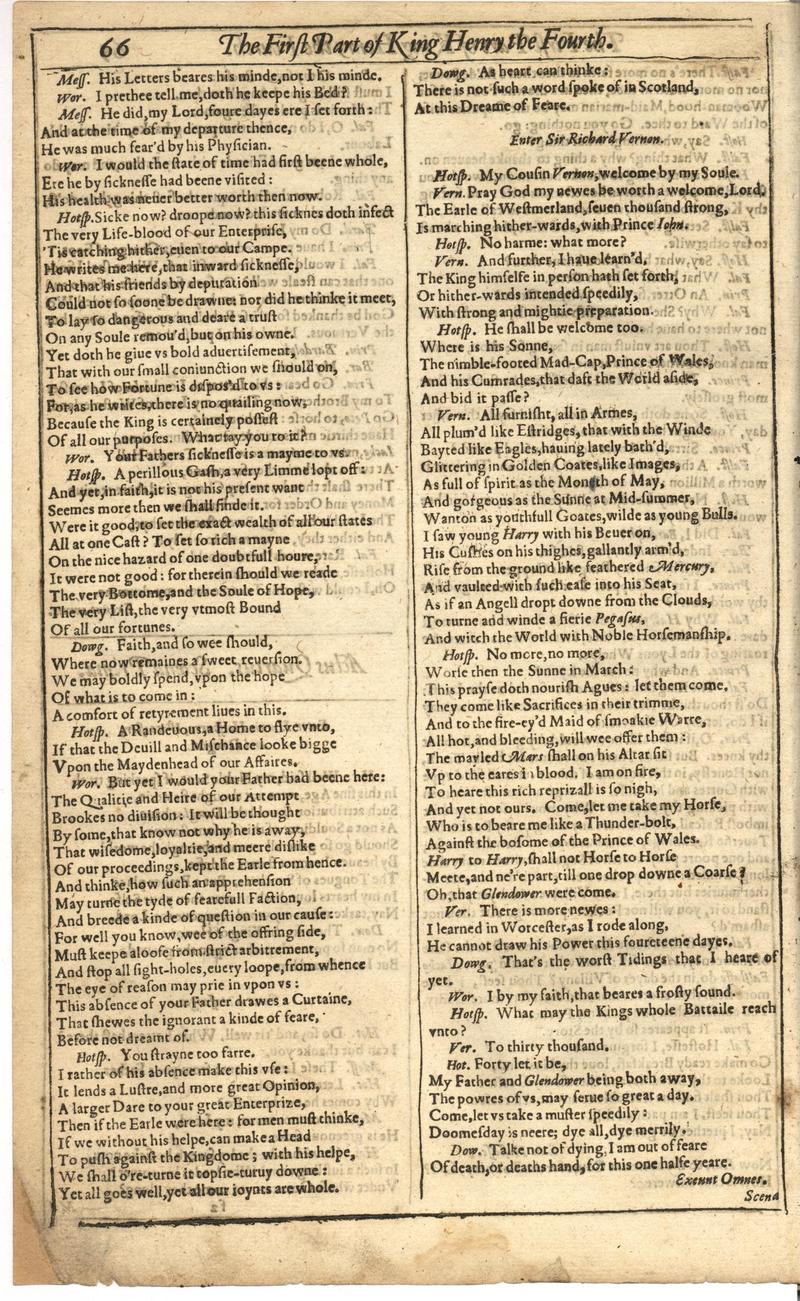 66 The Firſt Part of King Henry the Fourth.
Meſſ. His Letters beares his minde, not I his minde.
Wor. I prethee tell me, doth he keepe his Bed?
Meſſ. He did, my Lord, foure dayes ere I ſet forth:
And at the time of my departure thence,
He was much fear'd by his Phyſician.
Wor. I would the ſtate of time had firſt beene whole,
Ere he by ſickneſſe had beene viſited:
His health was neuer better worth then now.
Hotſp. Sicke now? droope now? this ſicknes doth infect
The very Life-blood of our Enterpriſe,
'Tis catching hither, euen to our Campe.
He writes me here, that inward ſickneſſe,
And that his friends by deputation
Could not ſo ſoone be drawne: nor did he thinke it meet,
To lay ſo dangerous and deare a truſt
On any Soule remou'd, but on his owne.
Yet doth he giue vs bold aduertiſement,
That with our ſmall coniunction we ſhould on,
To ſee how Fortune is diſpos'd to vs:
For, as he writes, there is no quailing now,
Becauſe the King is certainely poſſeſt
Of all our purpoſes. What ſay you to it?
Wor. Your Fathers ſickneſſe is a mayme to vs.
Hotſp. A perillous Gaſh, a very Limme lopt off:
And yet, in faith, it is not his preſent want
Seemes more then we ſhall finde it.
Were it good, to ſet the exact wealth of all our ſtates
All at one Caſt? To ſet ſo rich a mayne
On the nice hazard of one doubtfull houre,
It were not good: for therein ſhould we reade
The very Bottome, and the Soule of Hope,
The very Liſt, the very vtmoſt Bound
Of all our fortunes.
Dowg. Faith, and ſo wee ſhould,
Where now remaines a ſweet reuerſion.
We may boldly ſpend, vpon the hope
Of what is to come in:
A comfort of retyrement liues in this.
Hotſp. A Randeuous, a Home to flye vnto,
If that the Deuill and Miſchance looke bigge
Vpon the Maydenhead of our Affaires.
Wor. But yet I would your Father had beene here:
The Qualitie and Heire of our Attempt
Brookes no diuiſion: It will be thought
By ſome, that know not why he is away,
That wiſedome, loyaltie, and meere diſlike
Of our proceedings, kept the Earle from hence.
And thinke, how ſuch an apprehenſion
May turne the tyde of fearefull Faction,
And breede a kinde of queſtion in our cauſe:
For well you know, wee of the offring ſide,
Muſt keepe aloofe from ſtrict arbitrement,
And ſtop all ſight-holes, euery loope, from whence
The eye of reaſon may prie in vpon vs:
This abſence of your Father drawes a Curtaine,
That ſhewes the ignorant a kinde of feare,
Before not dreamt of.
Hotſp. You ſtrayne too farre.
I rather of his abſence make this vſe:
It lends a Luſtre, and more great Opinion,
A larger Dare to your great Enterprize,
Then if the Earle were here: for men muſt thinke,
If we without his helpe, can make a Head
To puſh againſt the Kingdome; with his helpe,
We ſhall o're-turne it topſie-turuy downe:
Yet all goes well, yet all our ioynts are whole.
Dowg. As heart can thinke:
There is not ſuch a word ſpoke of in Scotland,
At this Dreame of Feare.
Enter Sir Richard Vernon.
Hotſp. My Couſin Vernon, welcome by my Soule.
Vern. Pray God my newes be worth a welcome, Lord.
The Earle of Weſtmerland, ſeuen thouſand ſtrong,
Is marching hither-wards, with Prince Iohn.
Hotſp. No harme: what more?
Vern. And further, I haue learn'd,
The King himſelfe in perſon hath ſet forth,
Or hither-wards intended ſpeedily,
With ſtrong and mightie preparation.
Hotſp. He ſhall be welcome too.
Where is his Sonne,
The nimble-footed Mad-Cap, Prince of Wales,
And his Cumrades, that daft the World aſide,
And bid it paſſe?
Vern. All furniſht, all in Armes,
All plum'd like Eſtridges, that with the Winde
Bayted like Eagles, hauing lately bath'd,
Glittering in Golden Coates, like Images,
As full of ſpirit as the Month of May,
And gorgeous as the Sunne at Mid-ſummer,
Wanton as youthfull Goates, wilde as young Bulls.
I ſaw young Harry with his Beuer on,
His Cuſhes on his thighes, gallantly arm'd,
Riſe from the ground like feathered Mercury,
And vaulted with ſuch eaſe into his Seat,
As if an Angell dropt downe from the Clouds,
To turne and winde a fierie Pegaſus,
And witch the World with Noble Horſemanſhip.
Hotſp. No more, no more,
Worſe then the Sunne in March:
This prayſe doth nouriſh Agues: let them come.
They come like Sacrifices in their trimme,
And to the fire-ey'd Maid of ſmoakie Warre,
All hot, and bleeding, will wee offer them:
The mayled Mars ſhall on his Altar ſit
Vp to the eares in blood. I am on fire,
To heare this rich reprizall is ſo nigh,
And yet not ours. Come, let me take my Horſe,
Who is to beare me like a Thunder-bolt,
Againſt the boſome of the Prince of Wales.
Harry to Harry, ſhall not Horſe to Horſe
Meete, and ne're part, till one drop downe a Coarſe?
Oh, that Glendower were come.
Ver. There is more newes:
I learned in Worceſter, as I rode along,
He cannot draw his Power this foureteene dayes.
Dowg. That's the worſt Tidings that I heare of
yet.
Wor. I by my faith, that beares a froſty ſound.
Hotſp. What may the Kings whole Battaile reach
vnto?
Ver. To thirty thouſand.
Hot. Forty let it be,
My Father and Glendower being both away,
The powres of vs, may ſerue ſo great a day.
Come, let vs take a muſter ſpeedily:
Doomeſday is neere; dye all, dye merrily.
Dow. Talke not of dying, I am out of feare
Of death, or deaths hand, for this one halfe yeare.
Exeunt Omnes.
Scena